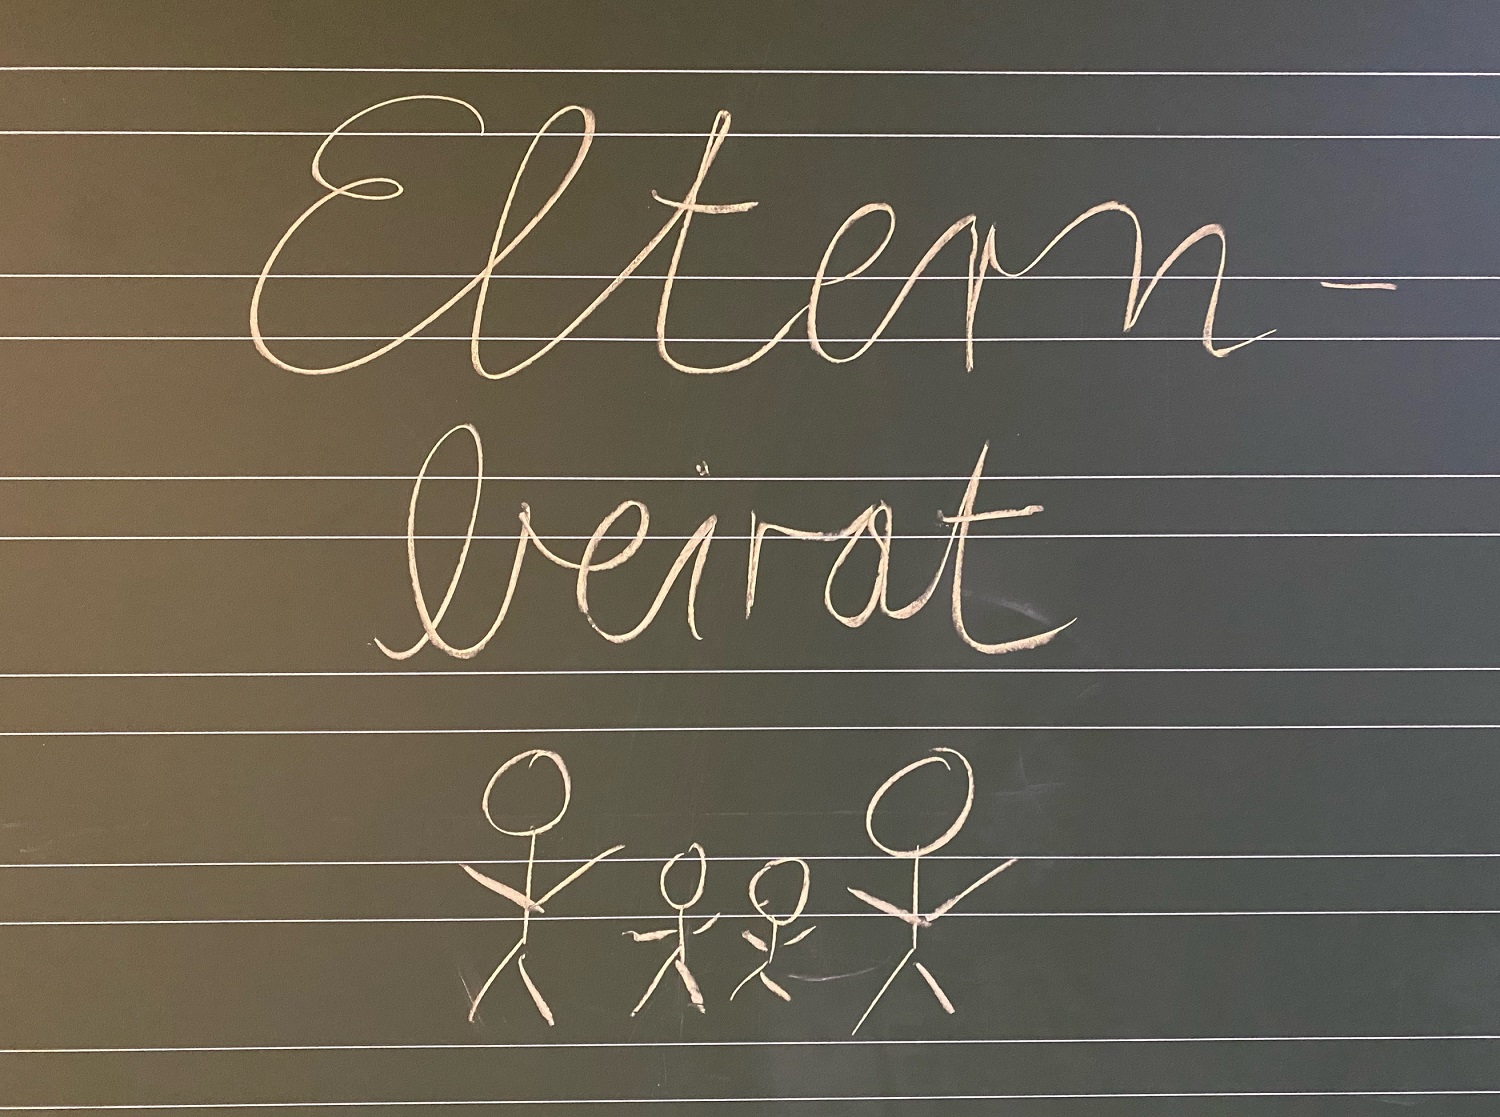 Eltern-
beirat